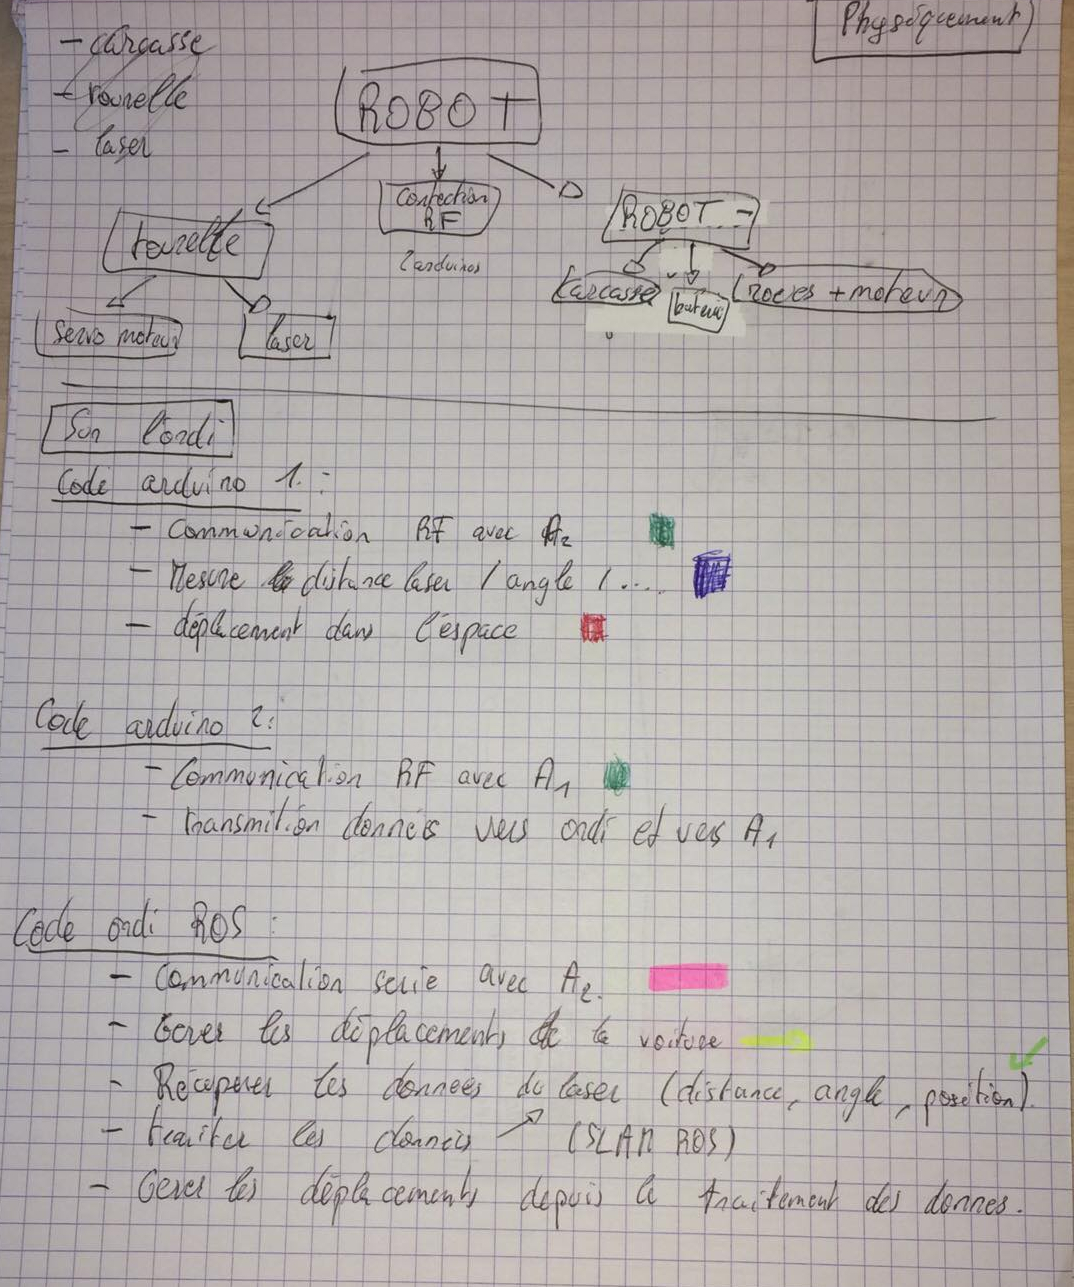 Physiquement
- carcasse
- tourelle
- laser
ROBOT
tourelle
Connection
RF
2 arduinos
ROBOT -
servo moteur
laser
carcasse
batterie
roues + moteurs
Sur l'ordi
Code arduino 1. :
- Communication RF avec A2
- Mesure distance laser / angle / ....
- déplacement dans l'espace
Code arduino 2 :
- Communication RF avec A1
- transmition données vers ordi et vers A1
Code ordi ROS :
- Communication serie avec A2.
- Gerer les déplacements de la voiture
- Récuperer les données du laser (distance, angle, position).
- traiter les données (SLAM ROS)
- Gerer les déplacements depuis le traitement des donnes.